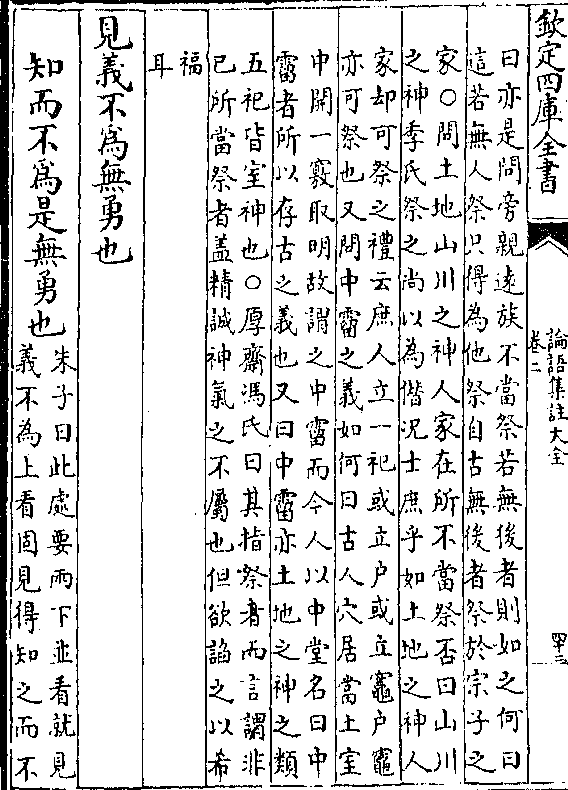 欽定四庫全書
論語集註大全
卷二
四十三
曰亦是問旁親遠族不當祭若無後者則如之何曰
這若無人祭只得為他祭自古無後者祭於宗子之
家○問土地山川之神人家在所不當祭否曰山川
之神季氏祭之尚以為僭況士庶乎如土地之神人
家却可祭之禮云庶人立一祀或立户或立竈户竈
亦可祭也又問中霤之義如何曰古人穴居當土室
中開一竅取明故謂之中霤而今人以中堂名曰中
霤者所以存古之義也又曰中霤亦土地之神之類
五祀皆室神也○厚齋馮氏曰其指祭者而言謂非
已所當祭者盖精誠神氣之不屬也但欲諂之以希
福
耳
見義不為無勇也
知而不為是無勇也
朱子曰此處要兩下並看就見
義不為上看固見得知之而不